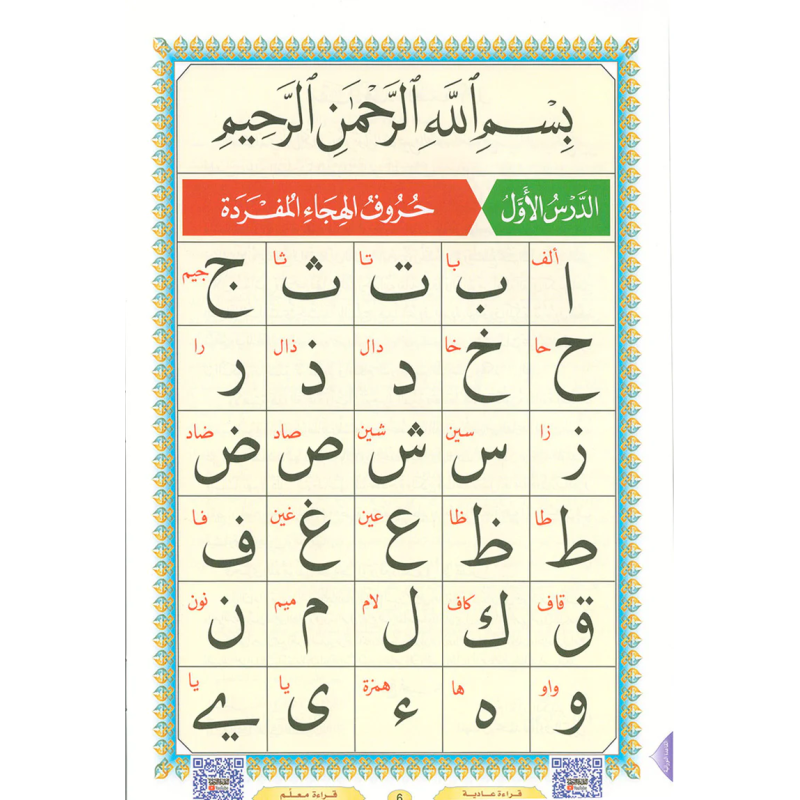 بِسْمِ ٱللَّهِ ٱلرَّحْمَٰنِ ٱلرَّحِيمِ
الدَّرْسُ الأَوَّلُ
حُرُوفُ الهِجَاءِ المُفْرَدَة
ا ألف ب با ت تا ث ثا ج جيم
ح حا خ خا د دال ذ ذال ر را
ز زا س سين ش شين ص صاد ض ضاد
ط طا ظ ظا ع عين غ غين ف فا
ق قاف ك كاف ل لام م ميم ن نون
و واو ه ها ء همزة ى يا ے يا
قراءة عادية 6 قراءة معلّم